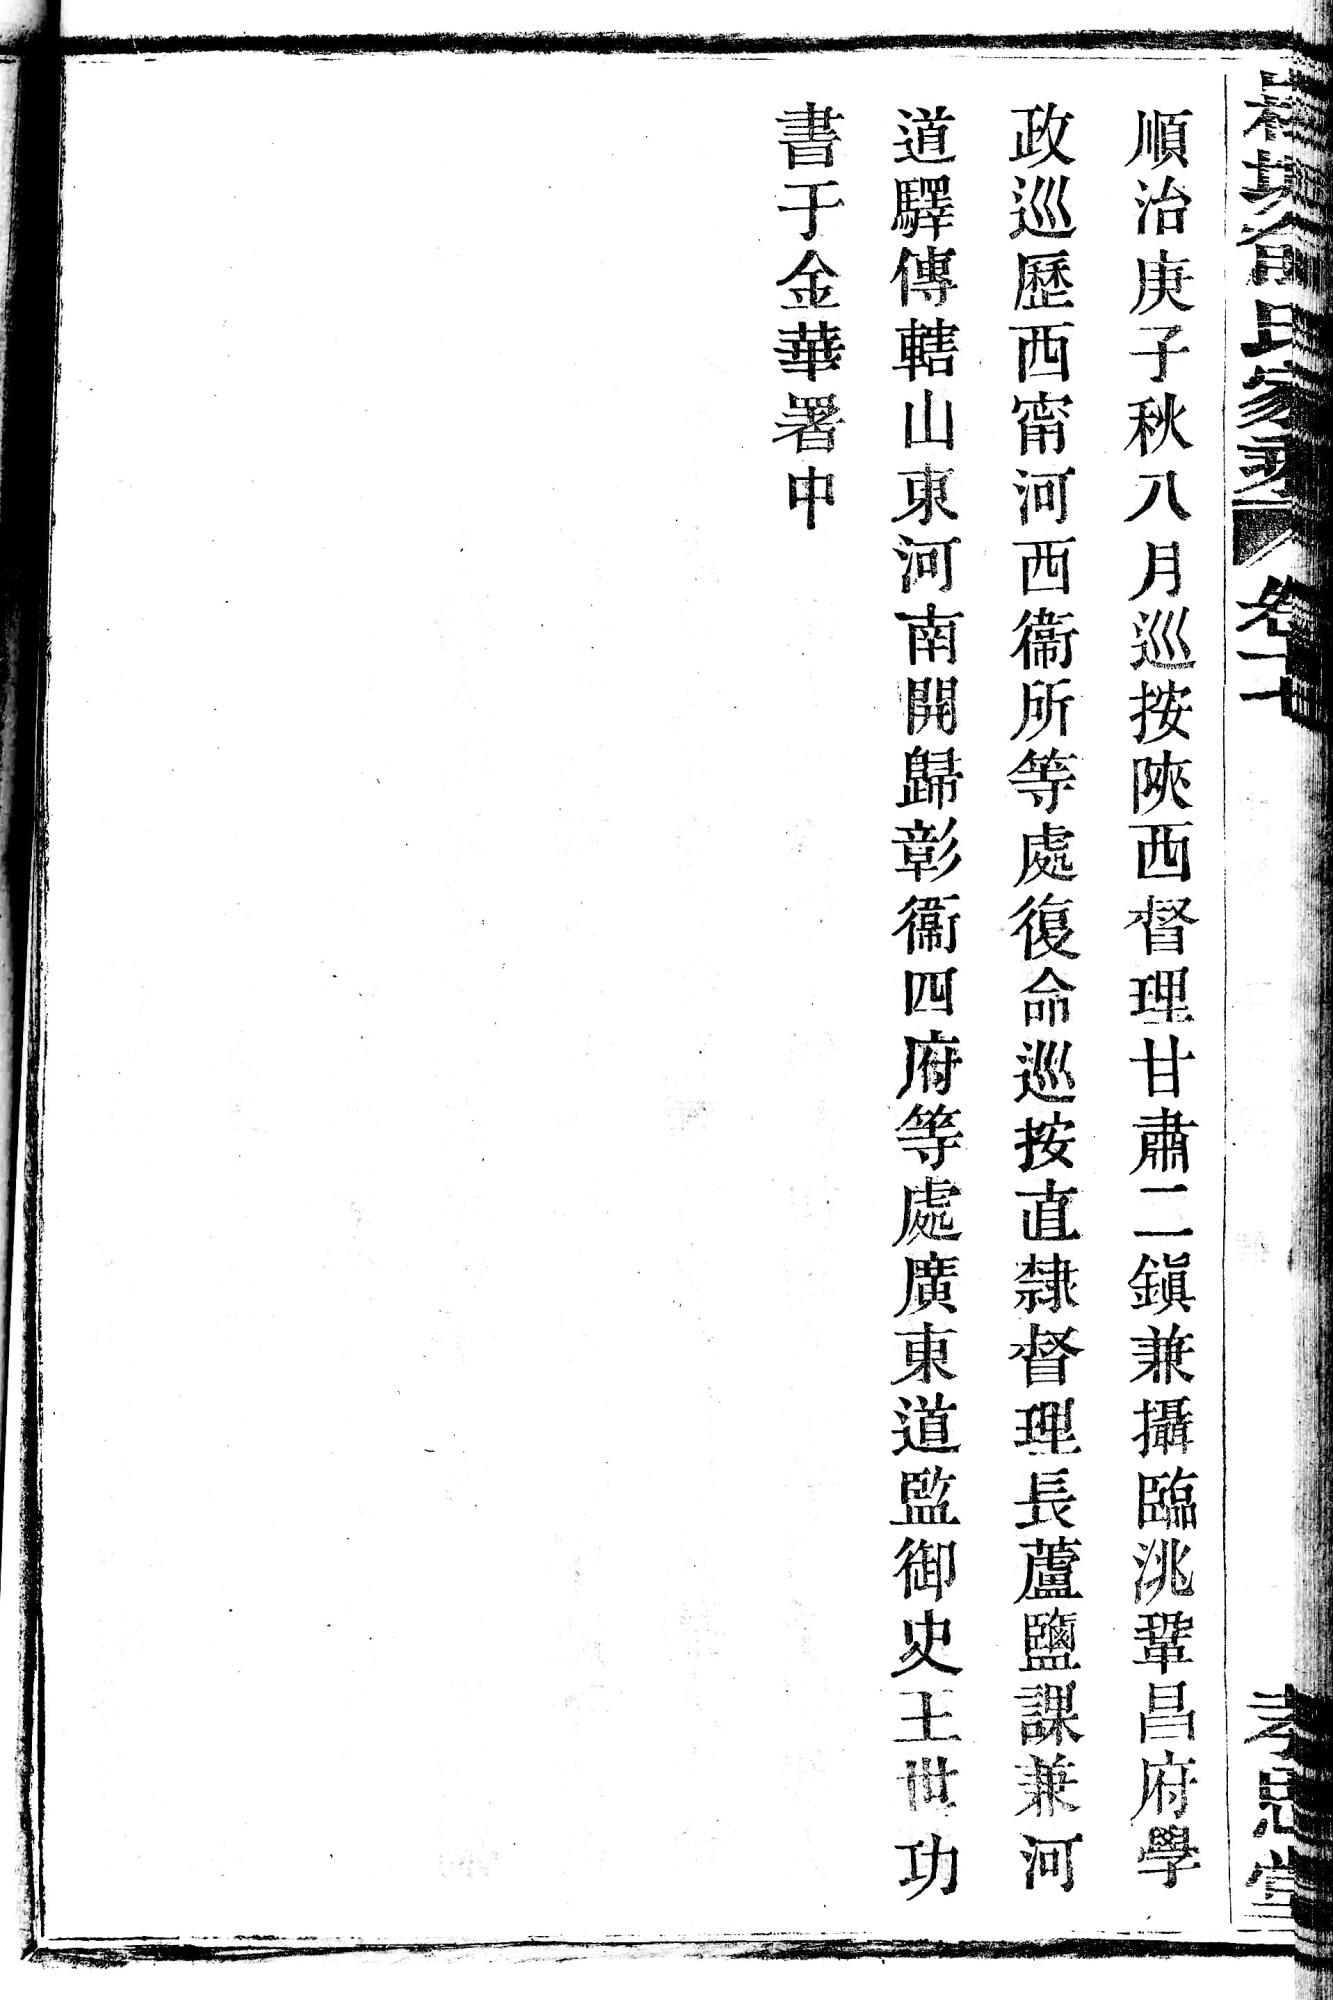 順治庚子秋八月巡按陝西督理甘肅二鎮兼攝臨洮鞏昌府學
政巡歷西甯河西衞所等處復命巡按直隸督理長蘆鹽課兼河
道驛傳轄山東河南開歸彰衞四府等處廣東道監御史王世功
書于金華署中
俞氏家乘
卷十七
孝思堂